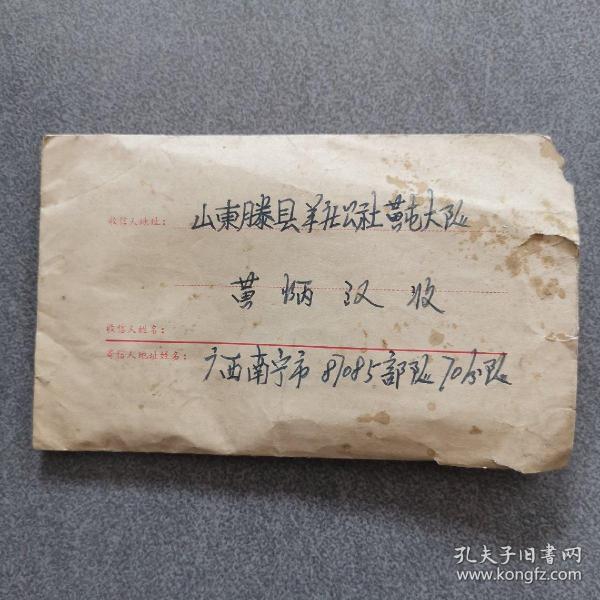 收信人地址：山東滕县羊庄公社黄屯大队
黄炳汉收
收信人姓名：
寄信人地址姓名：广西南宁市87085部队70分队
孔夫子旧书网
www.kongfz.com